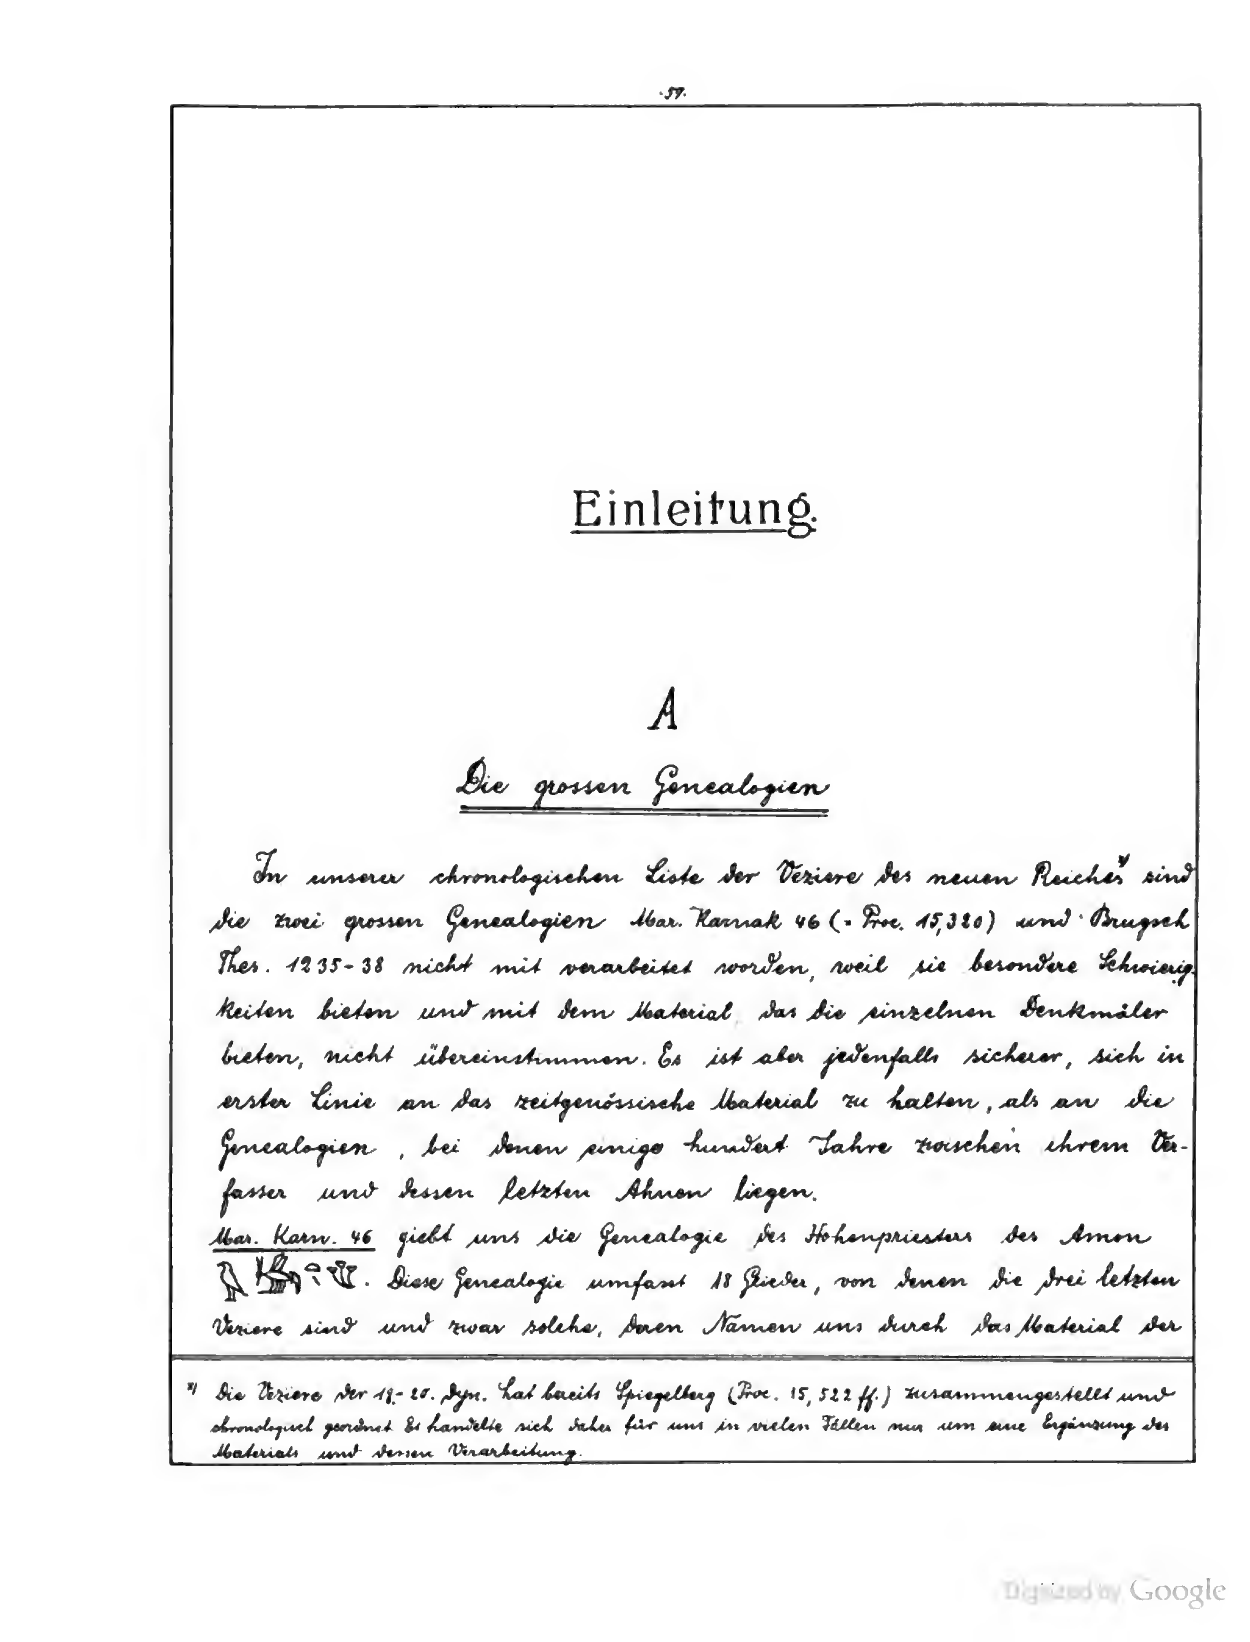 ·57·
Einleitung.
A
Die grossen Genealogien
In unserer chronologischen Liste der Veziere des neuen Reiches *) sind
die zwei grossen Genealogien Mar. Karnak 46 (= Proc. 15,320) und Brugsch
Thes. 1235-38 nicht mit verarbeitet worden, weil sie besondere Schwierig-
keiten bieten und mit dem Material das die einzelnen Denkmäler
bieten, nicht übereinstimmen. Es ist aber jedenfalls sicherer, sich in
erster Linie an das zeitgenössische Material zu halten, als an die
Genealogien, bei denen einige hundert Jahre zwischen ihrem Ver-
fasser und dessen letzten Ahnen liegen.
Mar. Karn. 46 giebt uns die Genealogie des Hohenpriesters des Amon
. Diese Genealogie umfasst 18 Glieder, von denen die drei letzten
Veziere sind und zwar solche, deren Namen uns durch das Material der
*) Die Veziere der 18.-20. Dyn. hat bereits Spiegelberg (Proc. 15, 522 ff.) zusammengestellt und
chronologisch geordnet. Es handelte sich daher für uns in vielen Fällen nur um eine Ergänzung des
Materials und dessen Verarbeitung.
Digitized by Google